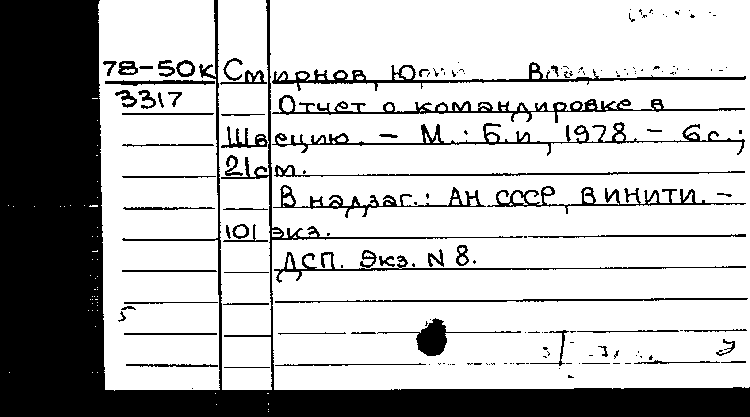 78-50к Смирнов, Юрий
3317 Отчет о командировке в
Швецию. - М.: Б.и, 1978. - 6с.;
21см.
В надзаг.: АН СССР, ВИНИТИ. -
101 экз.
ДСП. Экз. N 8.
5